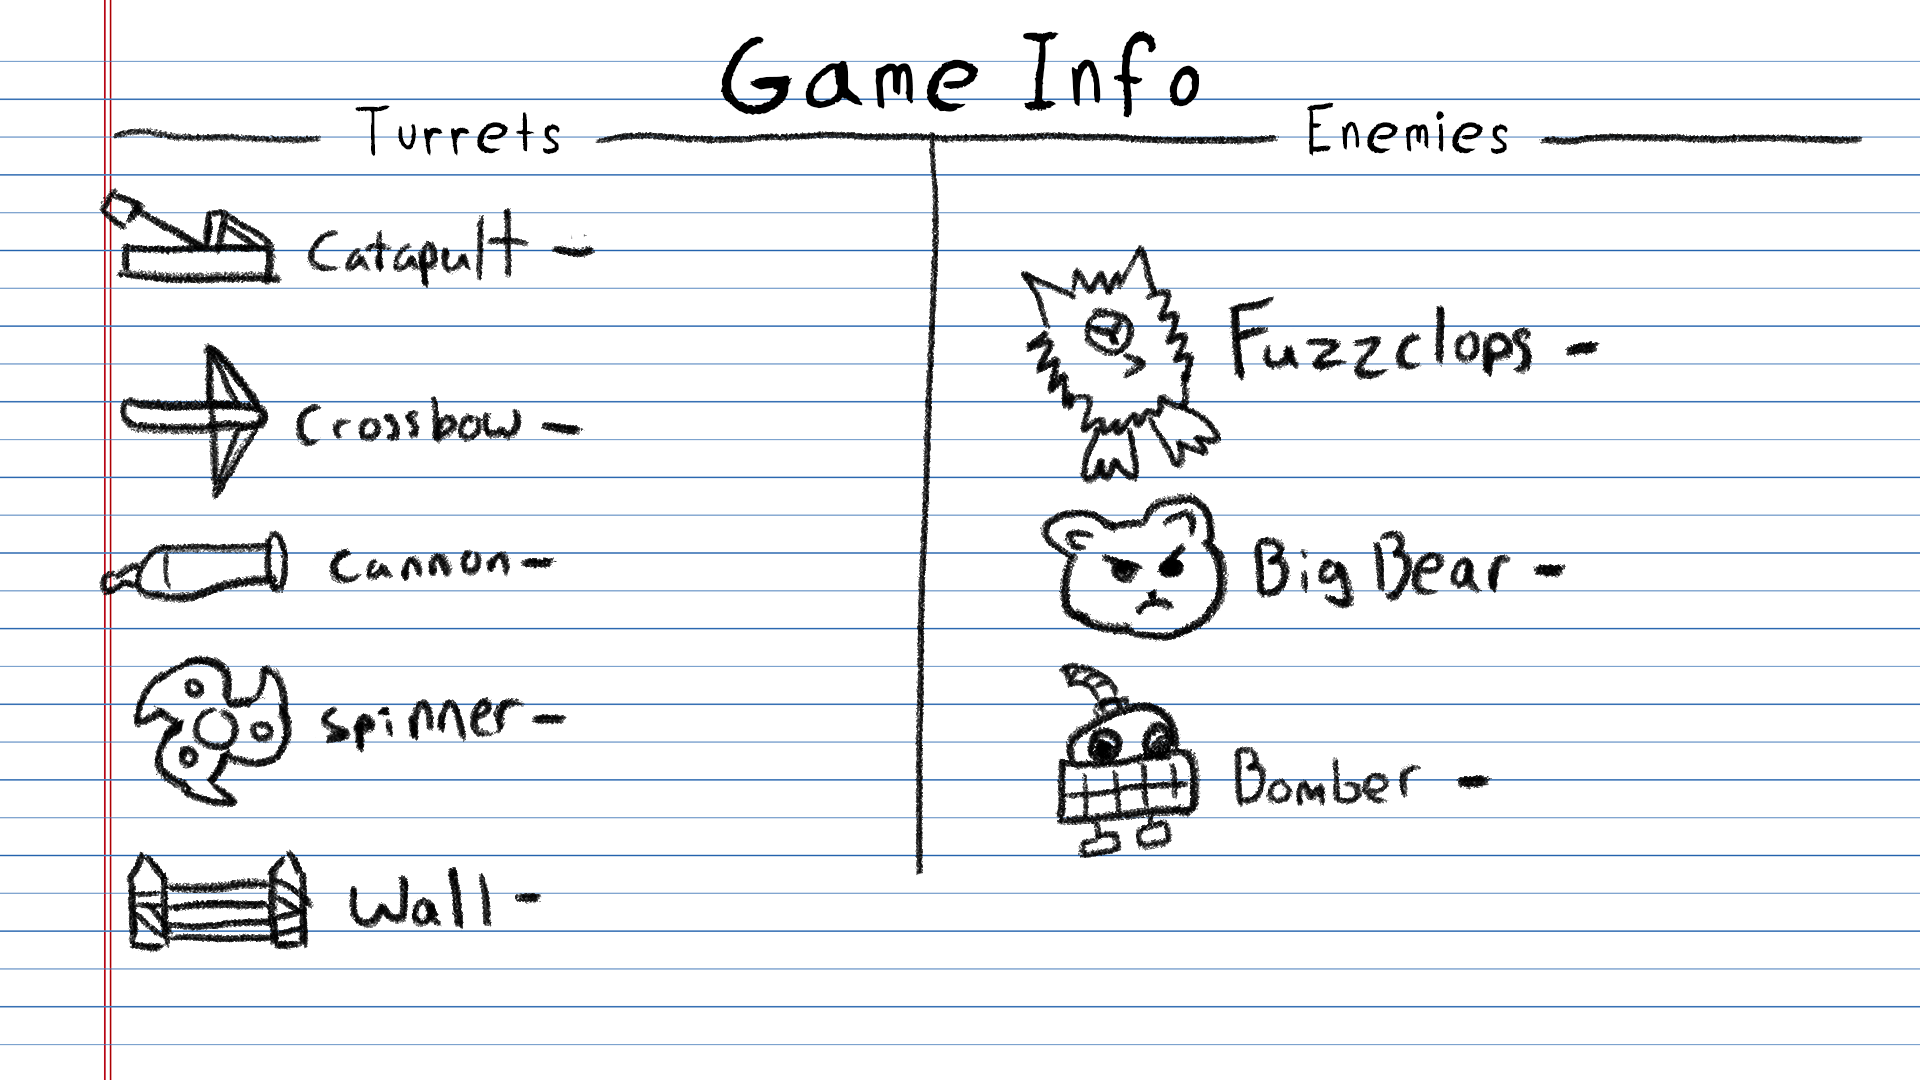 Game Info
Turrets
Catapult -
Crossbow -
Cannon -
Spinner -
Wall -
Enemies
Fuzzclops -
Big Bear -
Bomber -